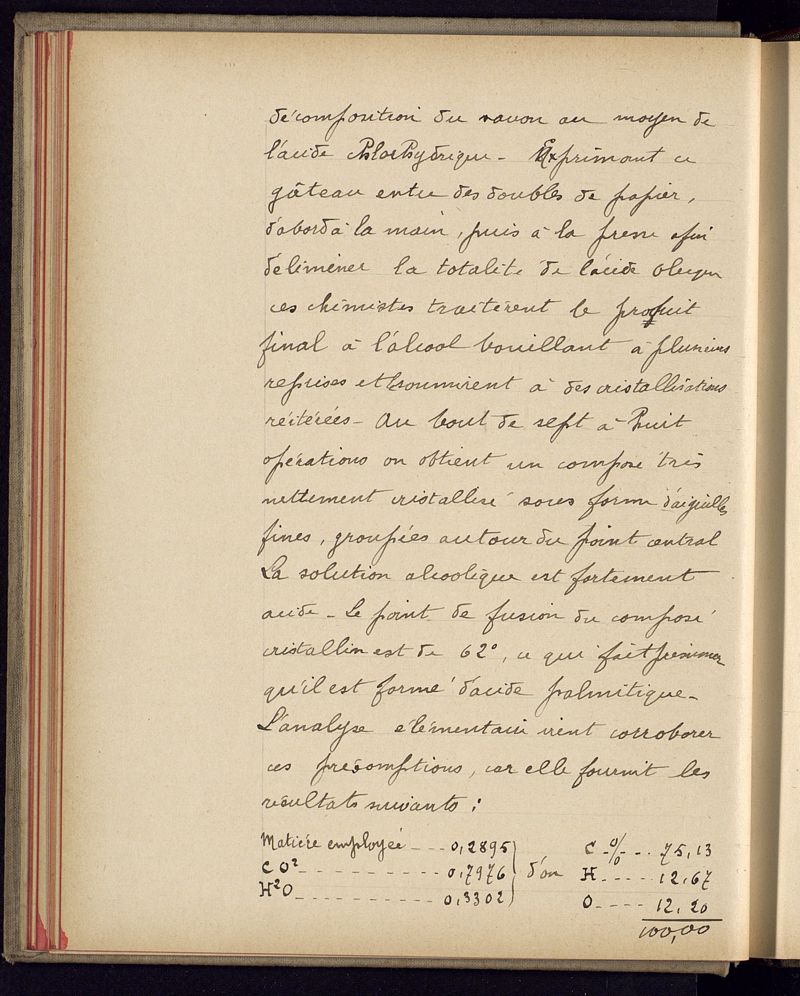 décomposition du savon au moyen de
l'acide chlorhydrique - Exprimant ce
gâteau entre des doubles de papier,
d'abord à la main, puis à la presse afin
d'eliminer la totalité de l'acide oleique
ces chimistes traitèrent le produit
final à l'alcool bouillant à plusieurs
reprises et soumirent à des cristallisations
réitérées - Au bout de sept à huit
opérations on obtient un composé très
nettement cristallisé sous forme d'aiguilles
fines, groupées autour du point central
La solution alcoolique est fortement
acide - Le point de fusion du composé
cristallin est de 62°, ce qui fait présumer
qu'il est formé d'acide palmitique -
L'analyse elémentaire vient corroborer
ces présomptions, car elle fournit les
résultats suivants :
Matière employée --- 0,2895 } d'ou C % --- 75,13
CO² --------- 0,7976 H ----- 12,67
H²O --------- 0,3302 O ---- 12,20
100,00